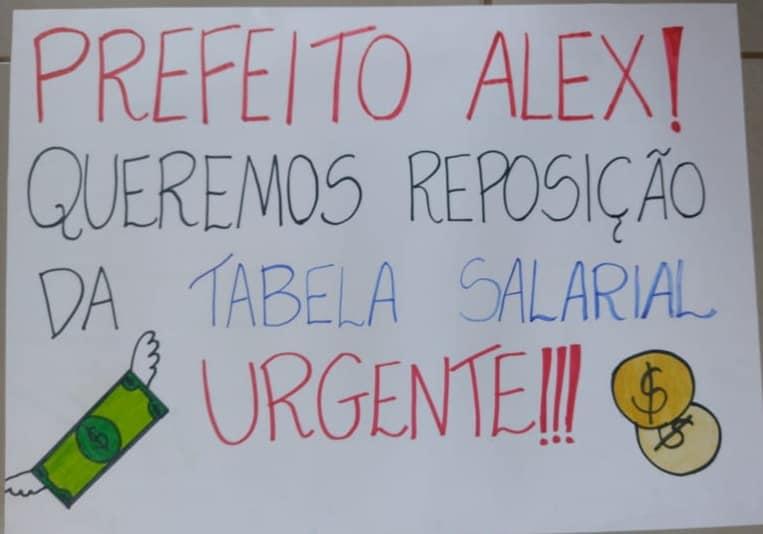 PREFEITO ALEX!
QUEREMOS REPOSIÇÃO
DA TABELA SALARIAL
URGENTE!!!
$
$
$